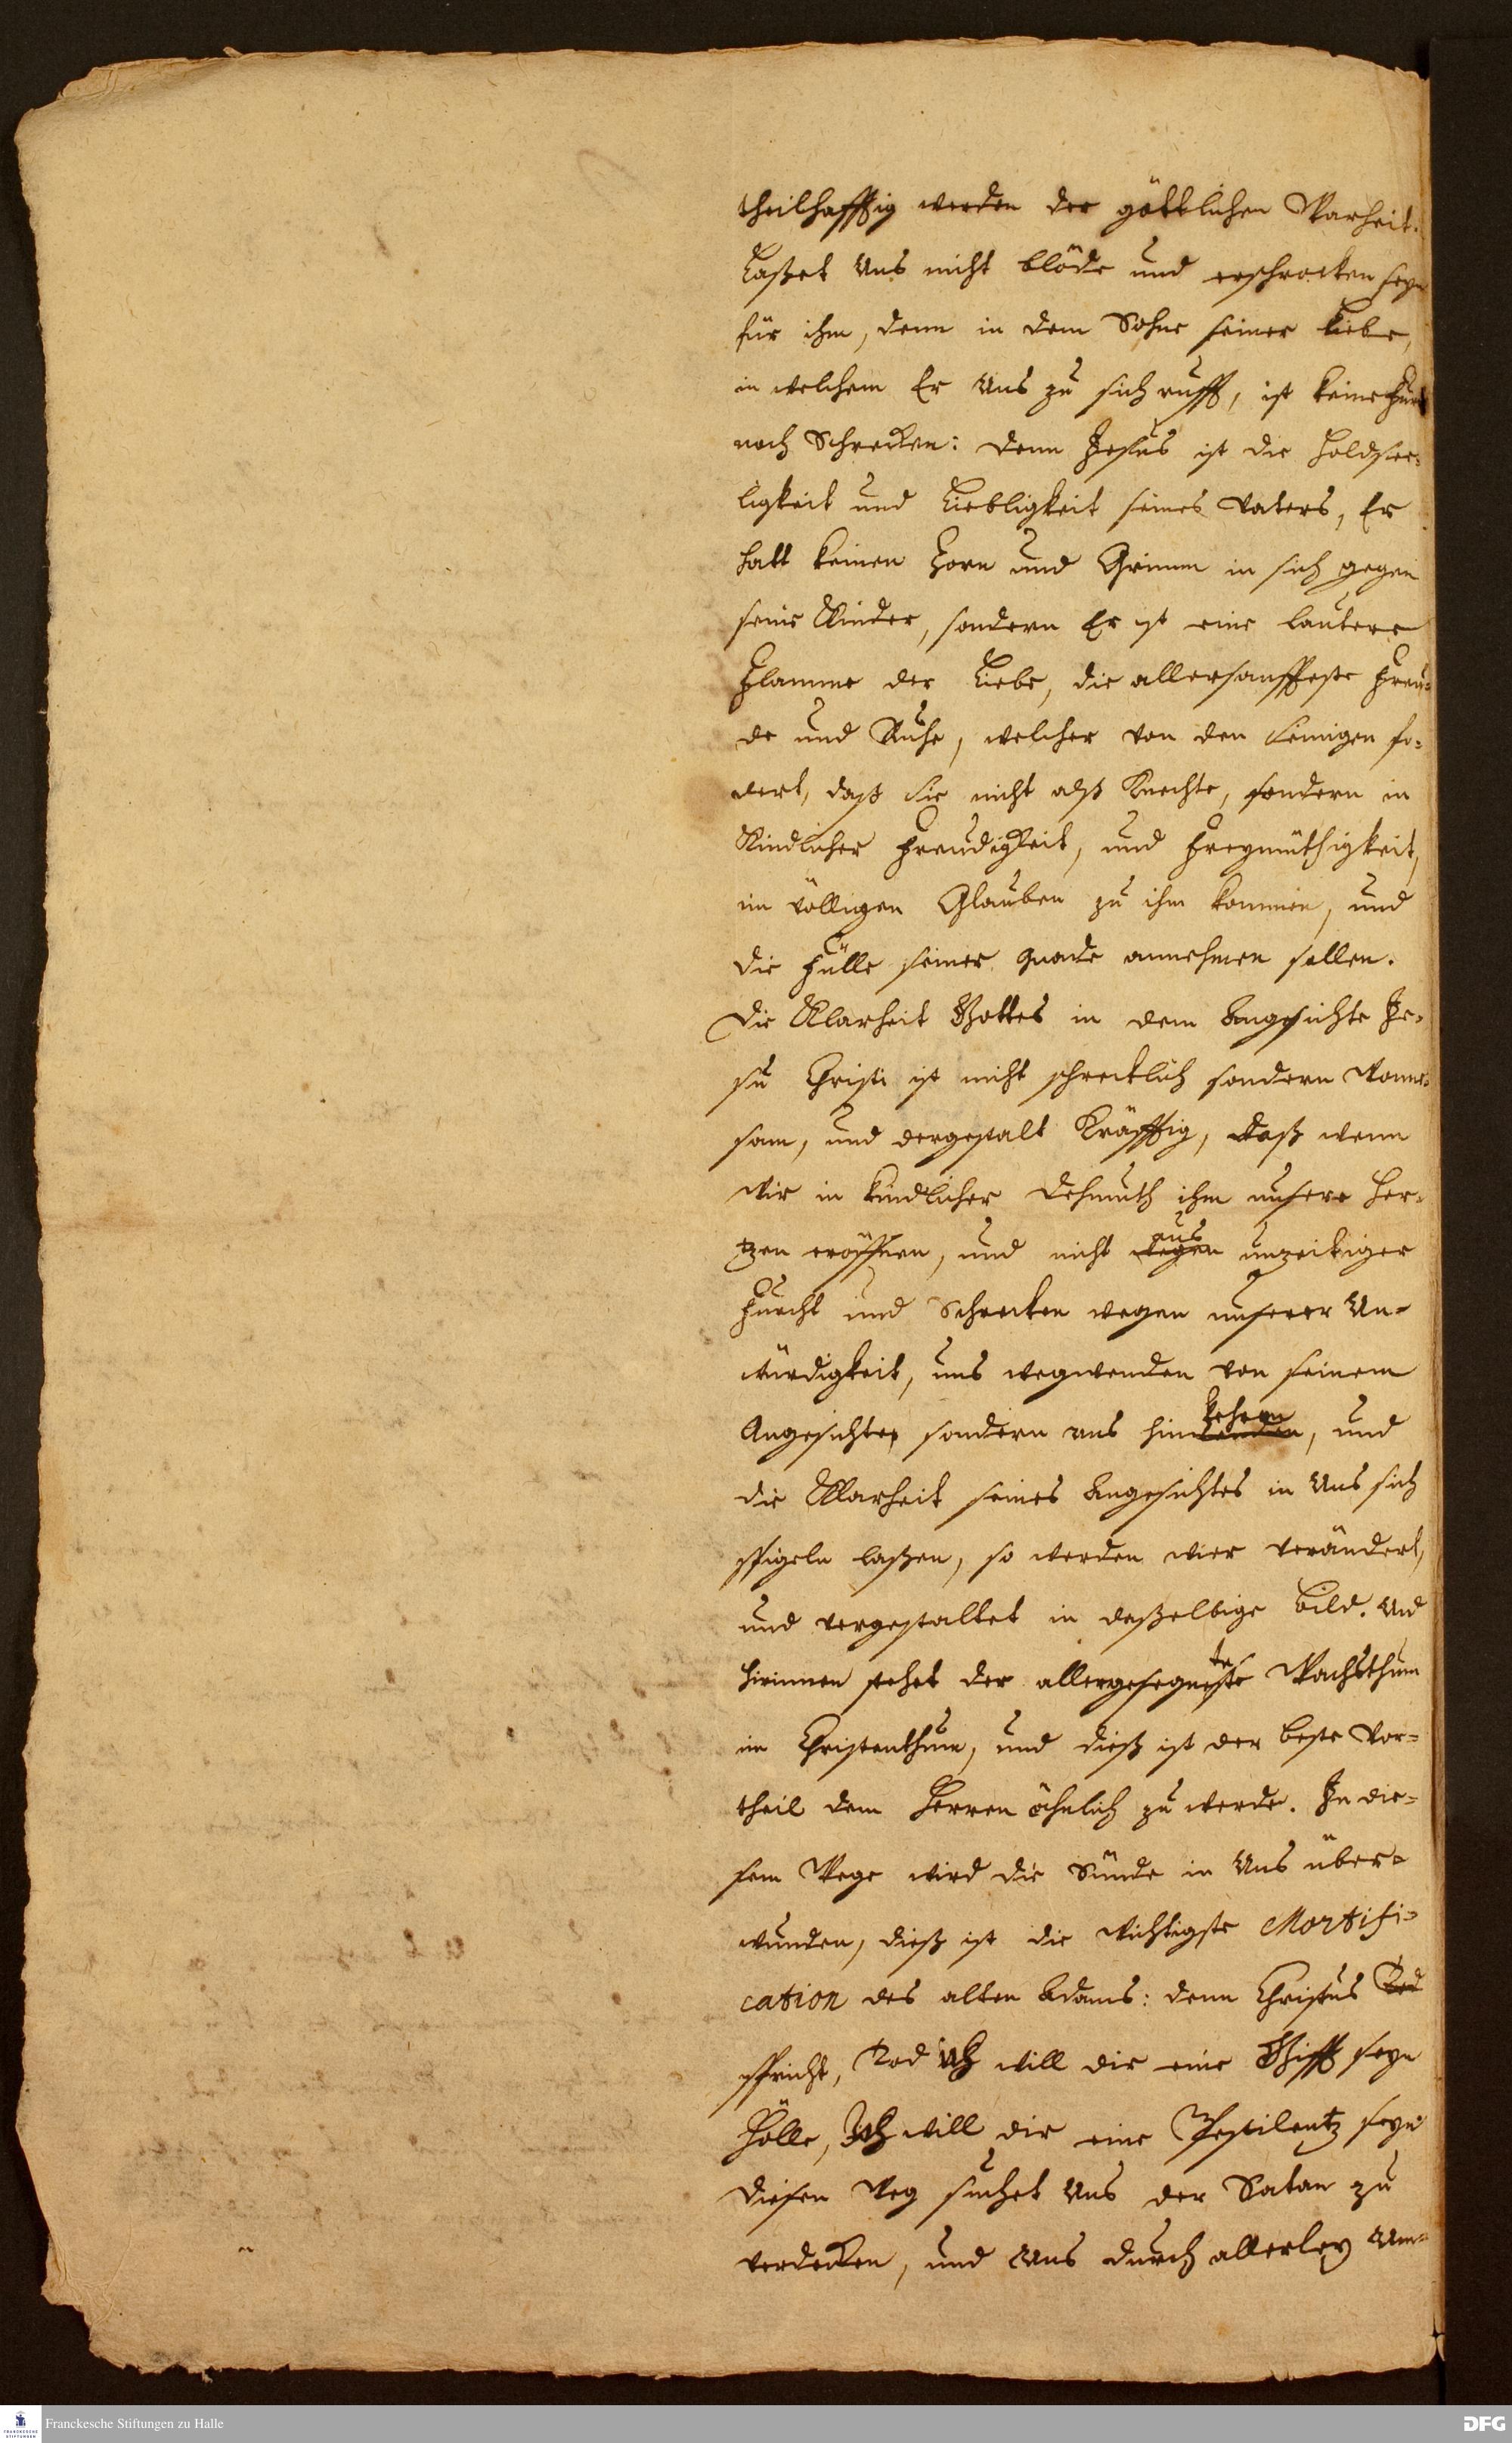 theilhafftig werden der göttlichen Warheit.
Laßet Uns nicht blöde und erschrocken seyn
für ihm, denn in dem Sohne seiner Liebe,
in welchem Er Uns zu sich rufft, ist keine Furcht
noch Schrecken: denn Jesus ist die Holdsee-
ligkeit und Liebligkeit seines Vaters, Er
hatt keinen Zorn und Grimm in sich gegen
seine Kinder, sondern Er ist eine lautere
Flamme der Liebe, die allersanffteste Freu-
de und Ruhe, welcher von den Seinigen fo-
dert, daß sie nicht alß Knechte, sondern in
Kindlicher Freudigkeit, und Freymüthigkeit,
im völligen Glauben zu ihm kommen, und
die Fülle seiner gnade annehmen sollen.
Die Klarheit Gottes in dem Angesichte Je-
su Christi ist nicht schrecklich sondern Wonne-
sam, und dergestalt Kräfftig, daß wenn
wir in kindlicher Dehmuth ihm unsere Her-
tzen eröffnen, und nicht wegen aus unzeitiger
Furcht und Schrecken wegen unserer Un-
würdigkeit, uns wegwenden von seinem
Angesichte, sondern uns hinwenden kehren, und
die Klarheit seines Angesichtes in Uns sich
spigeln laßen, so werden wier verändert,
und vergestaltet in daßelbige Bild. Und
hirinnen stehet der allergesegnetste Wachsthum
im Christenthum, und dieß ist der beste Vor-
theil dem Herren ähnlich zu werde. In die-
sem Wege wird die Sünde in Uns über-
wunden, dieß ist die wichtigste Mortifi-
cation des alten Adams: denn Christus Tod
spricht, Tod Ich will dir eine Gifft seyn
Hölle, Ich will dir eine Pestilentz seyn
diesen Weg suchet Uns der Satan zu
verdecken, und Uns durch allerley Um-
Franckesche Stiftungen zu Halle
DFG